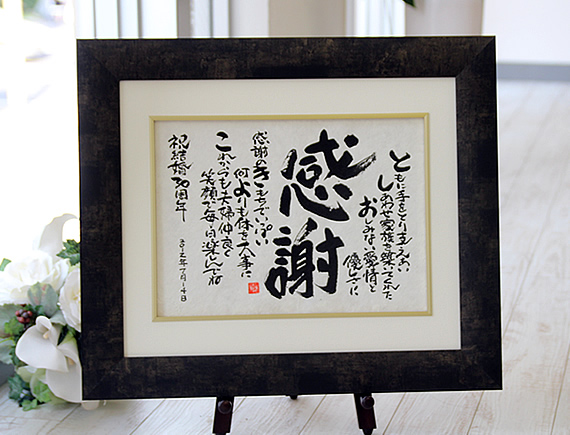 ともに手をとり支えあい
しあわせ家族を築いてくれた
おしみない愛情と
優しさに
感謝
感謝のきもちでいっぱい
何よりも体を大事に
これからも夫婦仲良く
笑顔で毎日楽しんでね
祝結婚30周年